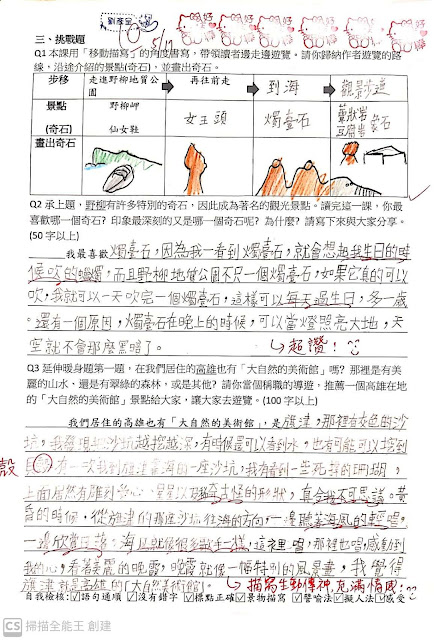 劉彥
5/17
三、挑戰題
Q1 本課用「移動描寫」的角度書寫，帶領讀者邊走邊遊覽。請你歸納作者遊覽的路
線，沿途介紹的景點(奇石)，並畫出奇石。
步移 走進野柳地質公園 再往前走 到海 觀景步道
景點 野柳岬 女王頭 燭臺石 蕈狀岩
(奇石) 仙女鞋 豆腐岩
畫出奇石
Q2 承上題，野柳有許多特別的奇石，因此成為著名的觀光景點。讀完這一課，你最
喜歡哪一個奇石? 印象最深刻的又是哪一個奇石呢? 為什麼? 請寫下來與大家分享。
(50 字以上)
我最喜歡燭臺石，因為我一看到燭臺石，就會想起我生日的時
候吹的蠟燭，而且野柳地質公園不只一個燭臺石，如果它真的可以
吹，我就可以一天吹完一個燭臺石，這樣可以每天過生日，多一歲
。還有一個原因，燭臺石在晚上的時候，可以當燈照亮大地，天
空就不會那麼黑暗了。
超讚！
Q3 延伸暖身題第一題，在我們居住的高雄也有「大自然的美術館」嗎? 那裡是有美
麗的山水，還是有翠綠的森林，或是其他? 請你當個稱職的導遊，推薦一個高雄在地
的「大自然的美術館」景點給大家，讓大家去遊覽。(100 字以上)
我們居住的高雄也有「大自然的美術館」，是旗津，那裡有灰色的沙
坑，我發現把沙坑越挖越深，有時候還可以看到水，也有可能可以挖到
貝 有一次我到旗津臺灣的一座沙坑，我有看到一些死掉的珊瑚，
殼
上面居然有雕刻 心、星星以及 奇古怪的形狀，真令我不可思議。黃
昏的時候，從旗津的那座沙坑往海的方向，一邊聽著海風的輕唱，
一邊欣賞日落，海 就像很多歌手一樣，這裡唱，那裡也唱感動到
我的心，看著美麗的晚霞，晚霞就像一幅特別的風景畫，我覺得
旗津就是高雄的「大自然美術館」。
描寫生動傳神，充滿情感
自我檢核：☑語句通順 ☑沒有錯字 ☑標點正確 ☑景物描寫 ☑譬喻法 ☑擬人法 ☑感受
CS 掃描全能王 創建